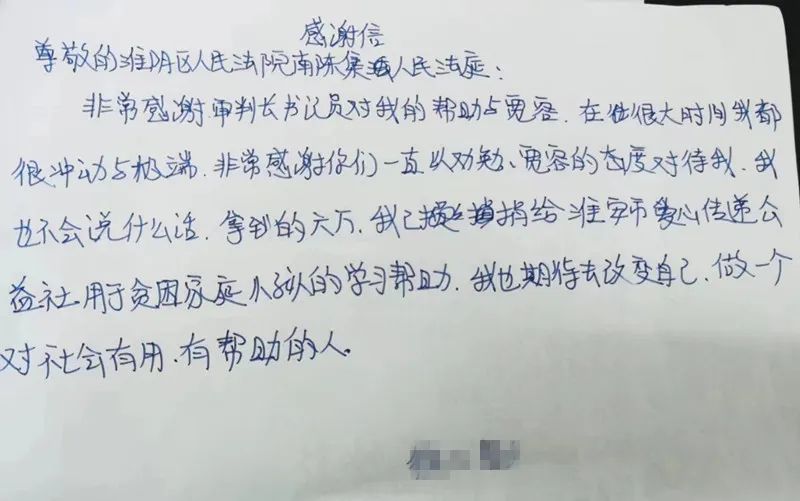 感谢信
尊敬的淮阴区人民法院南陈集人民法庭：
非常感谢审判长书记员对我的帮助与宽容. 在很大时间我都
很冲动与极端. 非常感谢你们一直以劝勉、宽容的态度对待我. 我
也不会说什么话. 拿到的六万. 我已捐给淮安市爱心传递公
益社用于贫困家庭小孩的学习帮助. 我也期待去改变自己. 做一个
对社会有用. 有帮助的人.